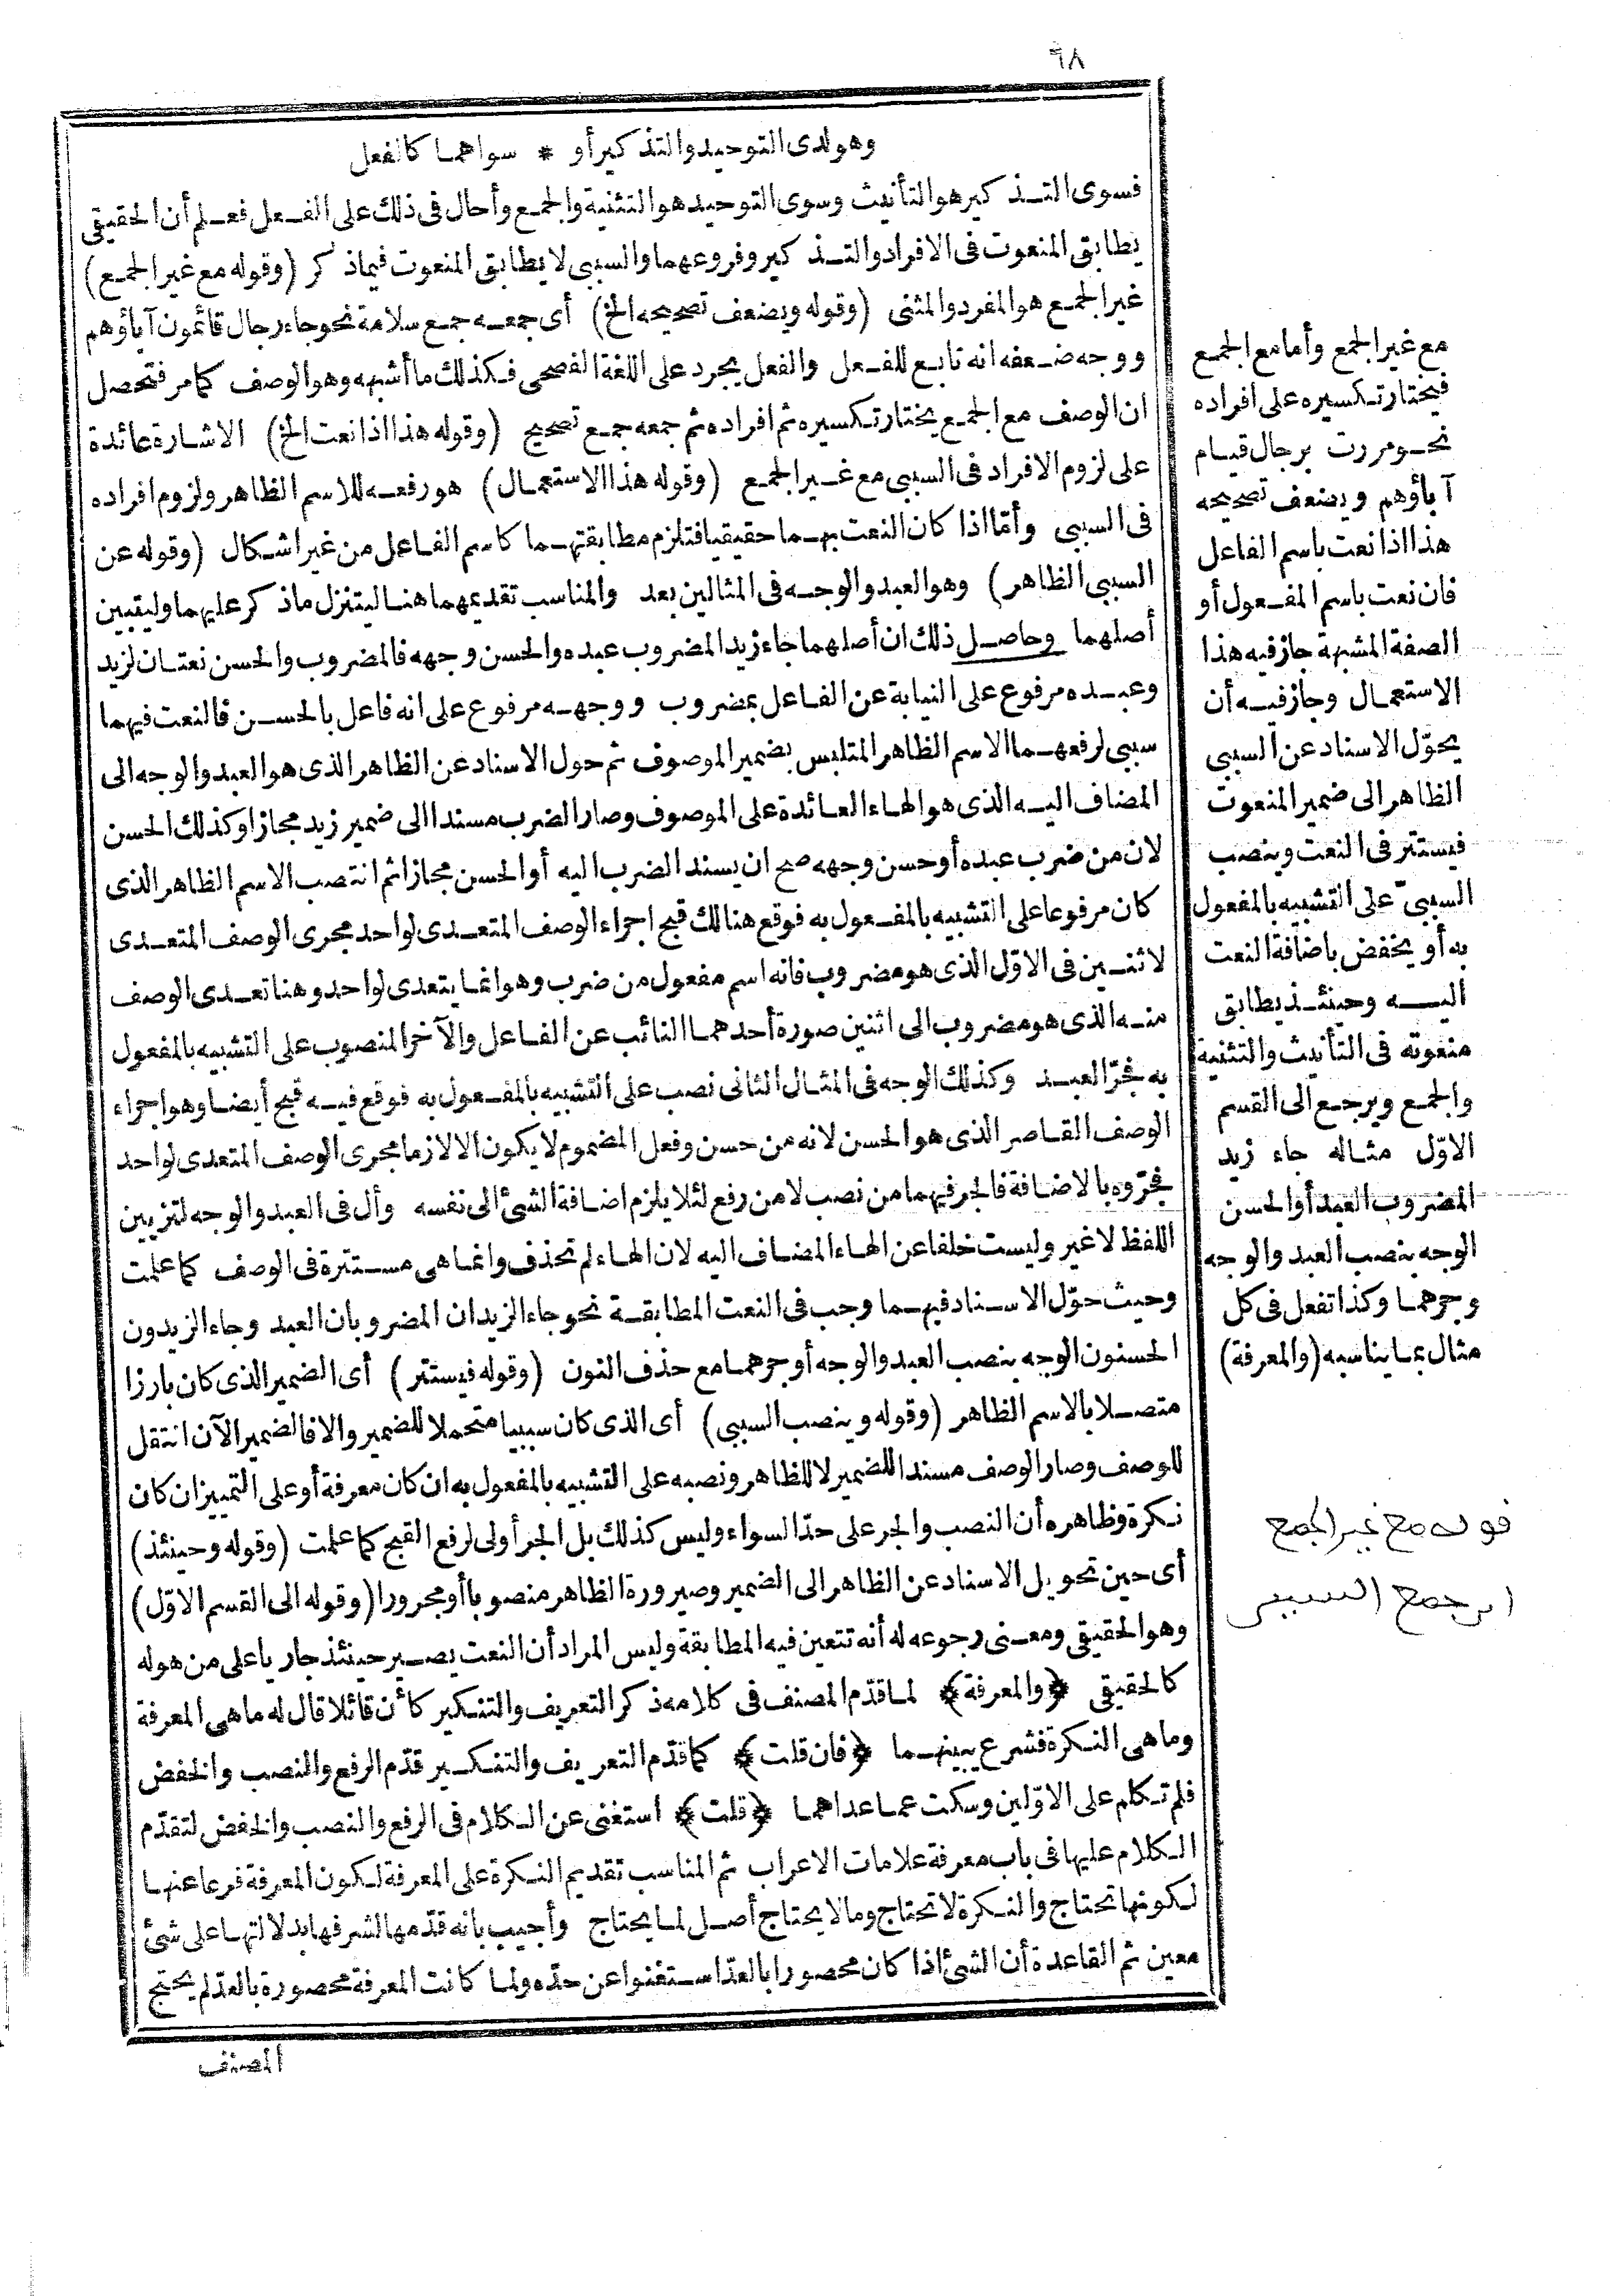 ٦٨
وهو لدى التوحيد والتذكير أو * سواهما كالفعل
فسوى التذكير هو التأنيث وسوى التوحيد هو التثنية والجمع وأحال فى ذلك على الفعل فعلم أن الحقيقى
يطابق المنعوت فى الافراد والتذكير وفروعهما والسببى لا يطابق المنعوت فيما ذكر (وقوله مع غير الجمع)
غير الجمع هو المفرد والمثنى (وقوله ويضعف تصحيحه الخ) أى جمعه جمع سلامة نحو جاء رجال قائمون آباؤهم
ووجه ضعفه انه تابع للفعل والفعل يجرد على اللغة الفصحى فكذلك ما أشبهه وهو الوصف كما مر فتحصل
ان الوصف مع الجمع يختار تكسيره ثم افراده ثم جمعه جمع تصحيح (وقوله هذا اذا نعت الخ) الاشارة عائدة
على لزوم الافراد فى السببى مع غير الجمع (وقوله هذا الاستعمال) هو رفعه للاسم الظاهر ولزوم افراده
فى السببى وأمّا اذا كان النعت بهما حقيقيا فتلزم مطابقتهما كاسم الفاعل من غير اشكال (وقوله عن
السببى الظاهر) وهو العبد والوجه فى المثالين بعد والمناسب تقديمهما هنا ليتنزل ماذكر عليهما وليتبين
أصلهما وحاصل ذلك ان أصلهما جاء زيد المضروب عبده والحسن وجهه فالمضروب والحسن نعتان لزيد
وعبده مرفوع على النيابة عن الفاعل بمضروب ووجهه مرفوع على انه فاعل بالحسن فالنعت فيهما
سببى لرفعهما الاسم الظاهر المتلبس بضمير الموصوف ثم حول الاسناد عن الظاهر الذى هو العبد والوجه الى
المضاف اليه الذى هو الهاء العائدة على الموصوف وصار الضرب مسندا الى ضمير زيد مجازا وكذلك الحسن
لان من ضرب عبده أو حسن وجهه صح ان يسند الضرب اليه أو الحسن مجازا ثم انتصب الاسم الظاهر الذى
كان مرفوعا على التشبيه بالمفعول به فوقع هنالك قبح اجراء الوصف المتعدى لواحد مجرى الوصف المتعدى
لاثنين فى الاوّل الذى هو مضروب فانه اسم مفعول من ضرب وهو انما يتعدى لواحد وهنا تعدى الوصف
منه الذى هو مضروب الى اثنين صورة أحدهما النائب عن الفاعل والآخر المنصوب على التشبيه بالمفعول
به فجرّ العبد وكذلك الوجه فى المثال الثانى نصب على التشبيه بالمفعول به فوقع فيه قبح أيضا وهو اجراء
الوصف القاصر الذى هو الحسن لانه من حسن وفعل المضموم لا يكون الا لازما مجرى الوصف المتعدى لواحد
فجرّوه بالاضافة فالجر فيهما من نصب لا من رفع لئلا يلزم اضافة الشئ الى نفسه وأل فى العبد والوجه لتزيين
اللفظ لا غير وليست خلفا عن الهاء المضاف اليه لان الهاء لم تحذف وانما هى مستترة فى الوصف كما علمت
وحيث حوّل الاسناد فيهما وجب فى النعت المطابقة نحو جاء الزيدان المضروبان العبد وجاء الزيدون
الحسنون الوجه بنصب العبد والوجه أو جرهما مع حذف النون (وقوله فيستتر) أى الضمير الذى كان بارزا
متصلا بالاسم الظاهر (وقوله وينصب السببى) أى الذى كان سببيا متحملا للضمير والا فالضمير الآن انتقل
للوصف وصار الوصف مسندا للضمير لا للظاهر ونصبه على التشبيه بالمفعول به ان كان معرفة أو على التمييز ان كان
نكرة وظاهره أن النصب والجر على حدّ السواء وليس كذلك بل الجر أولى لرفع القبح كما علمت (وقوله وحينئذ)
أى حين تحويل الاسناد عن الظاهر الى الضمير وصيرورة الظاهر منصوبا أو مجرورا (وقوله الى القسم الاوّل)
وهو الحقيقى ومعنى رجوعه له أنه تتعين فيه المطابقة وليس المراد أن النعت يصير حينئذ جاريا على من هو له
كالحقيقى ﴿والمعرفة﴾ لما قدّم المصنف فى كلامه ذكر التعريف والتنكير كأن قائلا قال له ما هى المعرفة
وما هى النكرة فشرع يبينهما ﴿فان قلت﴾ كما قدّم التعريف والتنكير قدّم الرفع والنصب والخفض
فلم تكلم على الاوّلين وسكت عما عداهما ﴿قلت﴾ استغنى عن الكلام فى الرفع والنصب والخفض لتقدّم
الكلام عليها فى باب معرفة علامات الاعراب ثم المناسب تقديم النكرة على المعرفة لكون المعرفة فرعا عنها
لكونها تحتاج والنكرة لا تحتاج وما لا يحتاج أصل لما يحتاج وأجيب بانه قدّمها لشرفها بدلالتها على شئ
معين ثم القاعدة أن الشئ اذا كان محصورا بالعدّ استغنوا عن حدّه ولما كانت المعرفة محصورة بالعدّ لم يحتج
المصنف
مع غير الجمع وأما مع الجمع
فيختار تكسيره على افراده
نحو مررت برجال قيام
آباؤهم ويضعف تصحيحه
هذا اذا نعت باسم الفاعل
فان نعت باسم المفعول أو
الصفة المشبهة جاز فيه هذا
الاستعمال وجاز فيه أن
يحوّل الاسناد عن السببى
الظاهر الى ضمير المنعوت
فيستتر فى النعت وينصب
السببىّ على التشبيه بالمفعول
به أو يخفض باضافة النعت
اليه وحينئذ يطابق
منعوته فى التأنيث والتثنية
والجمع ويرجع الى القسم
الاوّل مثاله جاء زيد
المضروب العبد أو الحسن
الوجه بنصب العبد والوجه
وجرهما وكذا تفعل فى كل
مثال بما يناسبه (والمعرفة)
قوله مع غير الجمع
جمع السببى